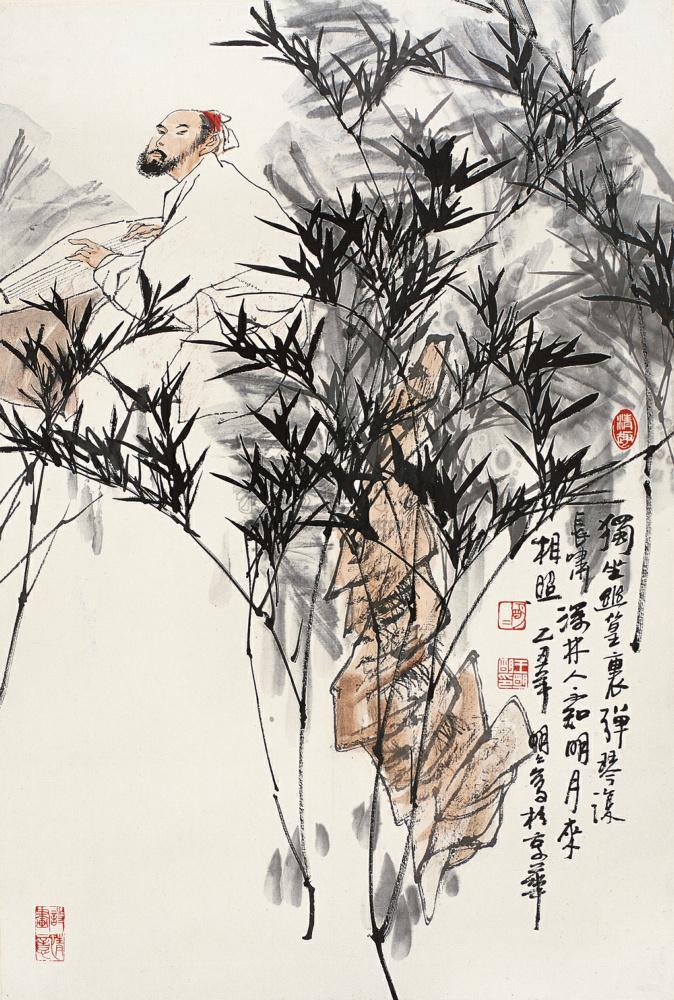 清趣
獨坐幽篁裏彈琴復
長嘯深林人不知明月來
相照 乙丑年明明寫於京華
詩情畫意